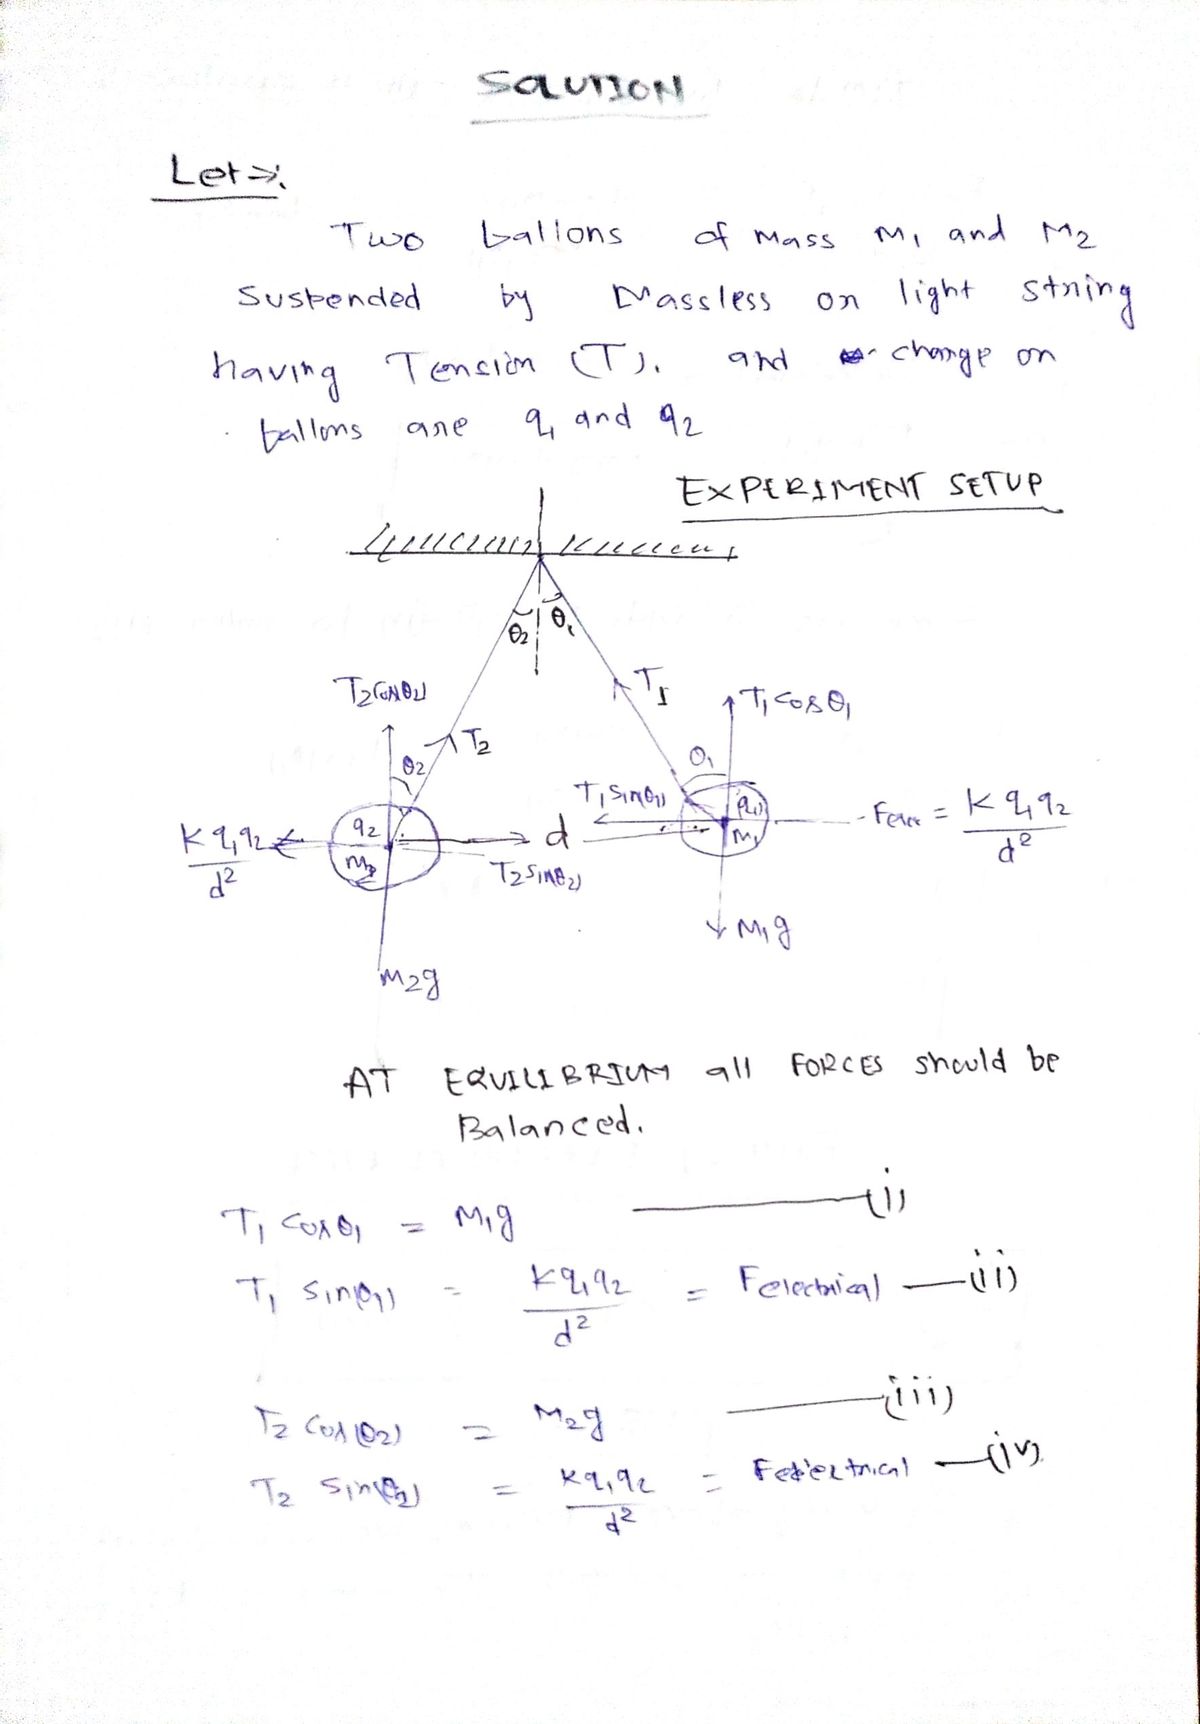 SOLUTION
Let ⇒:
Two ballons of mass M₁ and M₂
Suspended by Massless or light string
having Tension (T). and charge on
ballons are q₁ and q₂
EXPERIMENT SETUP
θ₂ θ₁
T₂cosθ₂
T₁
T₁cosθ₁
T₂
θ₂
θ₁
T₁sin(θ₁)
q₂
q₁
Kq₁q₂/d²
d
M₂
M₁
Felec = Kq₁q₂/d²
T₂sin(θ₂)
M₁g
M₂g
AT EQUILIBRIUM all FORCES should be
Balanced.
T₁ cosθ₁ = M₁g —(i)
T₁ sin(θ₁) = Kq₁q₂/d² = Felectrical —(ii)
T₂ cos(θ₂) = M₂g —(iii)
T₂ sin(θ₂) = Kq₁q₂/d² = Felectrical —(iv)